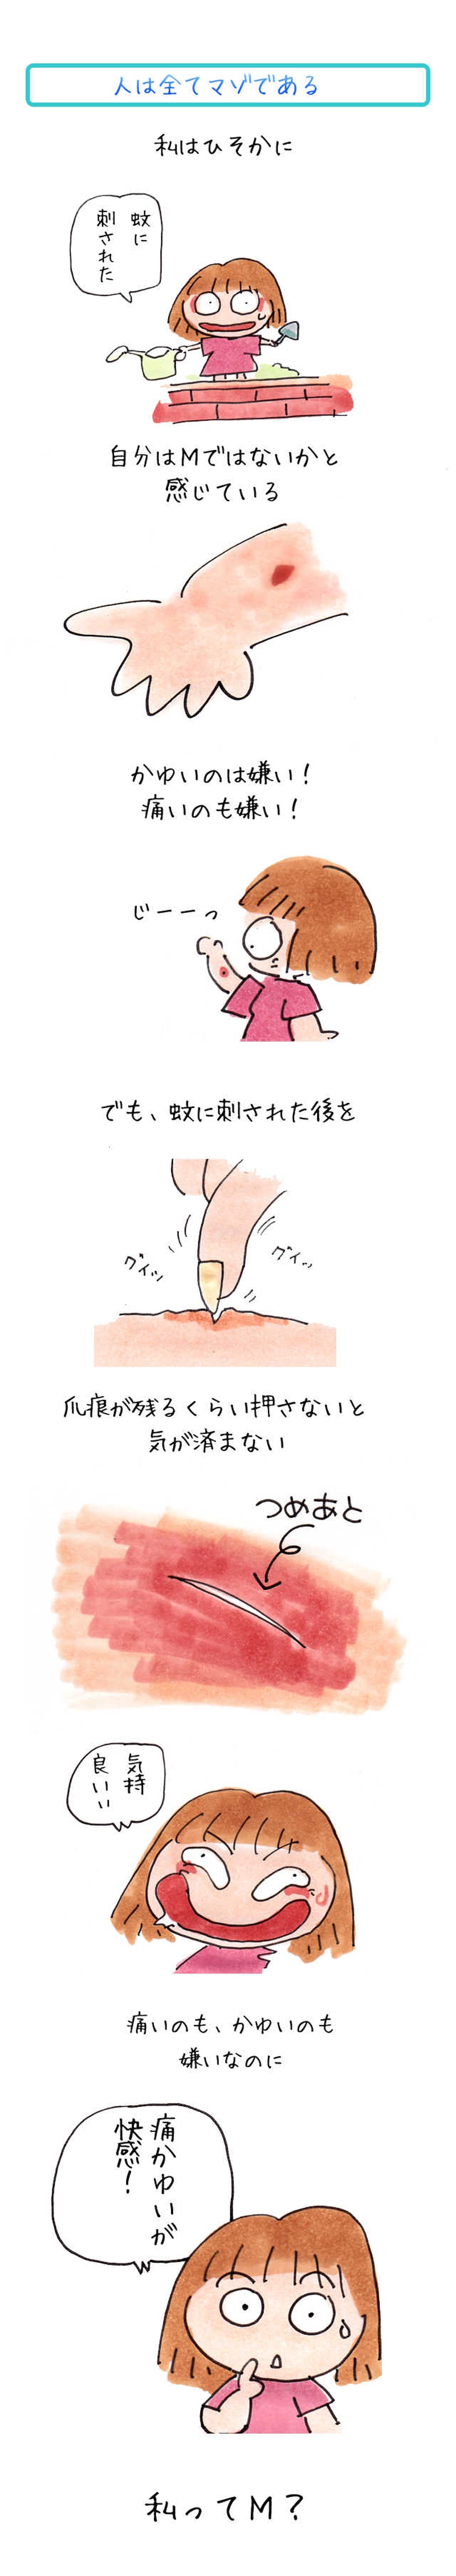 人は全てマゾである
私はひそかに
蚊に
刺された
自分はMではないかと
感じている
かゆいのは嫌い！
痛いのも嫌い！
じーーっ
でも、蚊に刺された後を
グイッ
グイッ
爪痕が残るくらい押さないと
気が済まない
つめあと
気持
良いい
痛いのも、かゆいのも
嫌いなのに
痛かゆいが
快感！
私ってM？